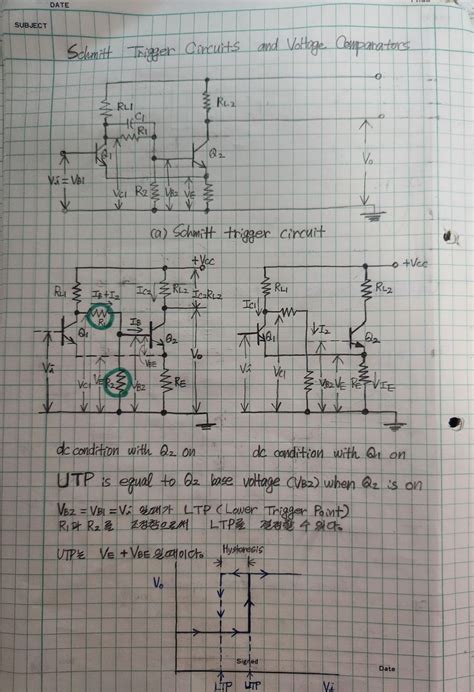 DATE
SUBJECT
Schmitt Trigger Circuits and Voltage Comparators
RL1
C1
R1
RL2
Q1
Q2
Vi=VB1
VC1
R2
VB2
VE
Vo
(a) Schmitt trigger circuit
+VCC
+VCC
RL1
IB+I2
IC2
RL2
IC2RL2
R1
IB
Q1
Q2
VBE
Vi
VC1
VE
R2
VB2
RE
Vo
RL1
RL2
IC1
I2
Q1
Q2
Vi
VC1
VB2
VE
RE
IE
dc condition with Q2 on
dc condition with Q1 on
UTP is equal to Q2 base voltage (VB2) when Q2 is on
VB2 = VB1 = Vi 일때가 LTP (Lower Trigger Point)
R1과 R2를 조정함으로써 LTP를 결정할 수 있다.
UTP는 VE + VBE 일때이다.
Hysteresis
Vo
Signed
Date
LTP
UTP
Vi